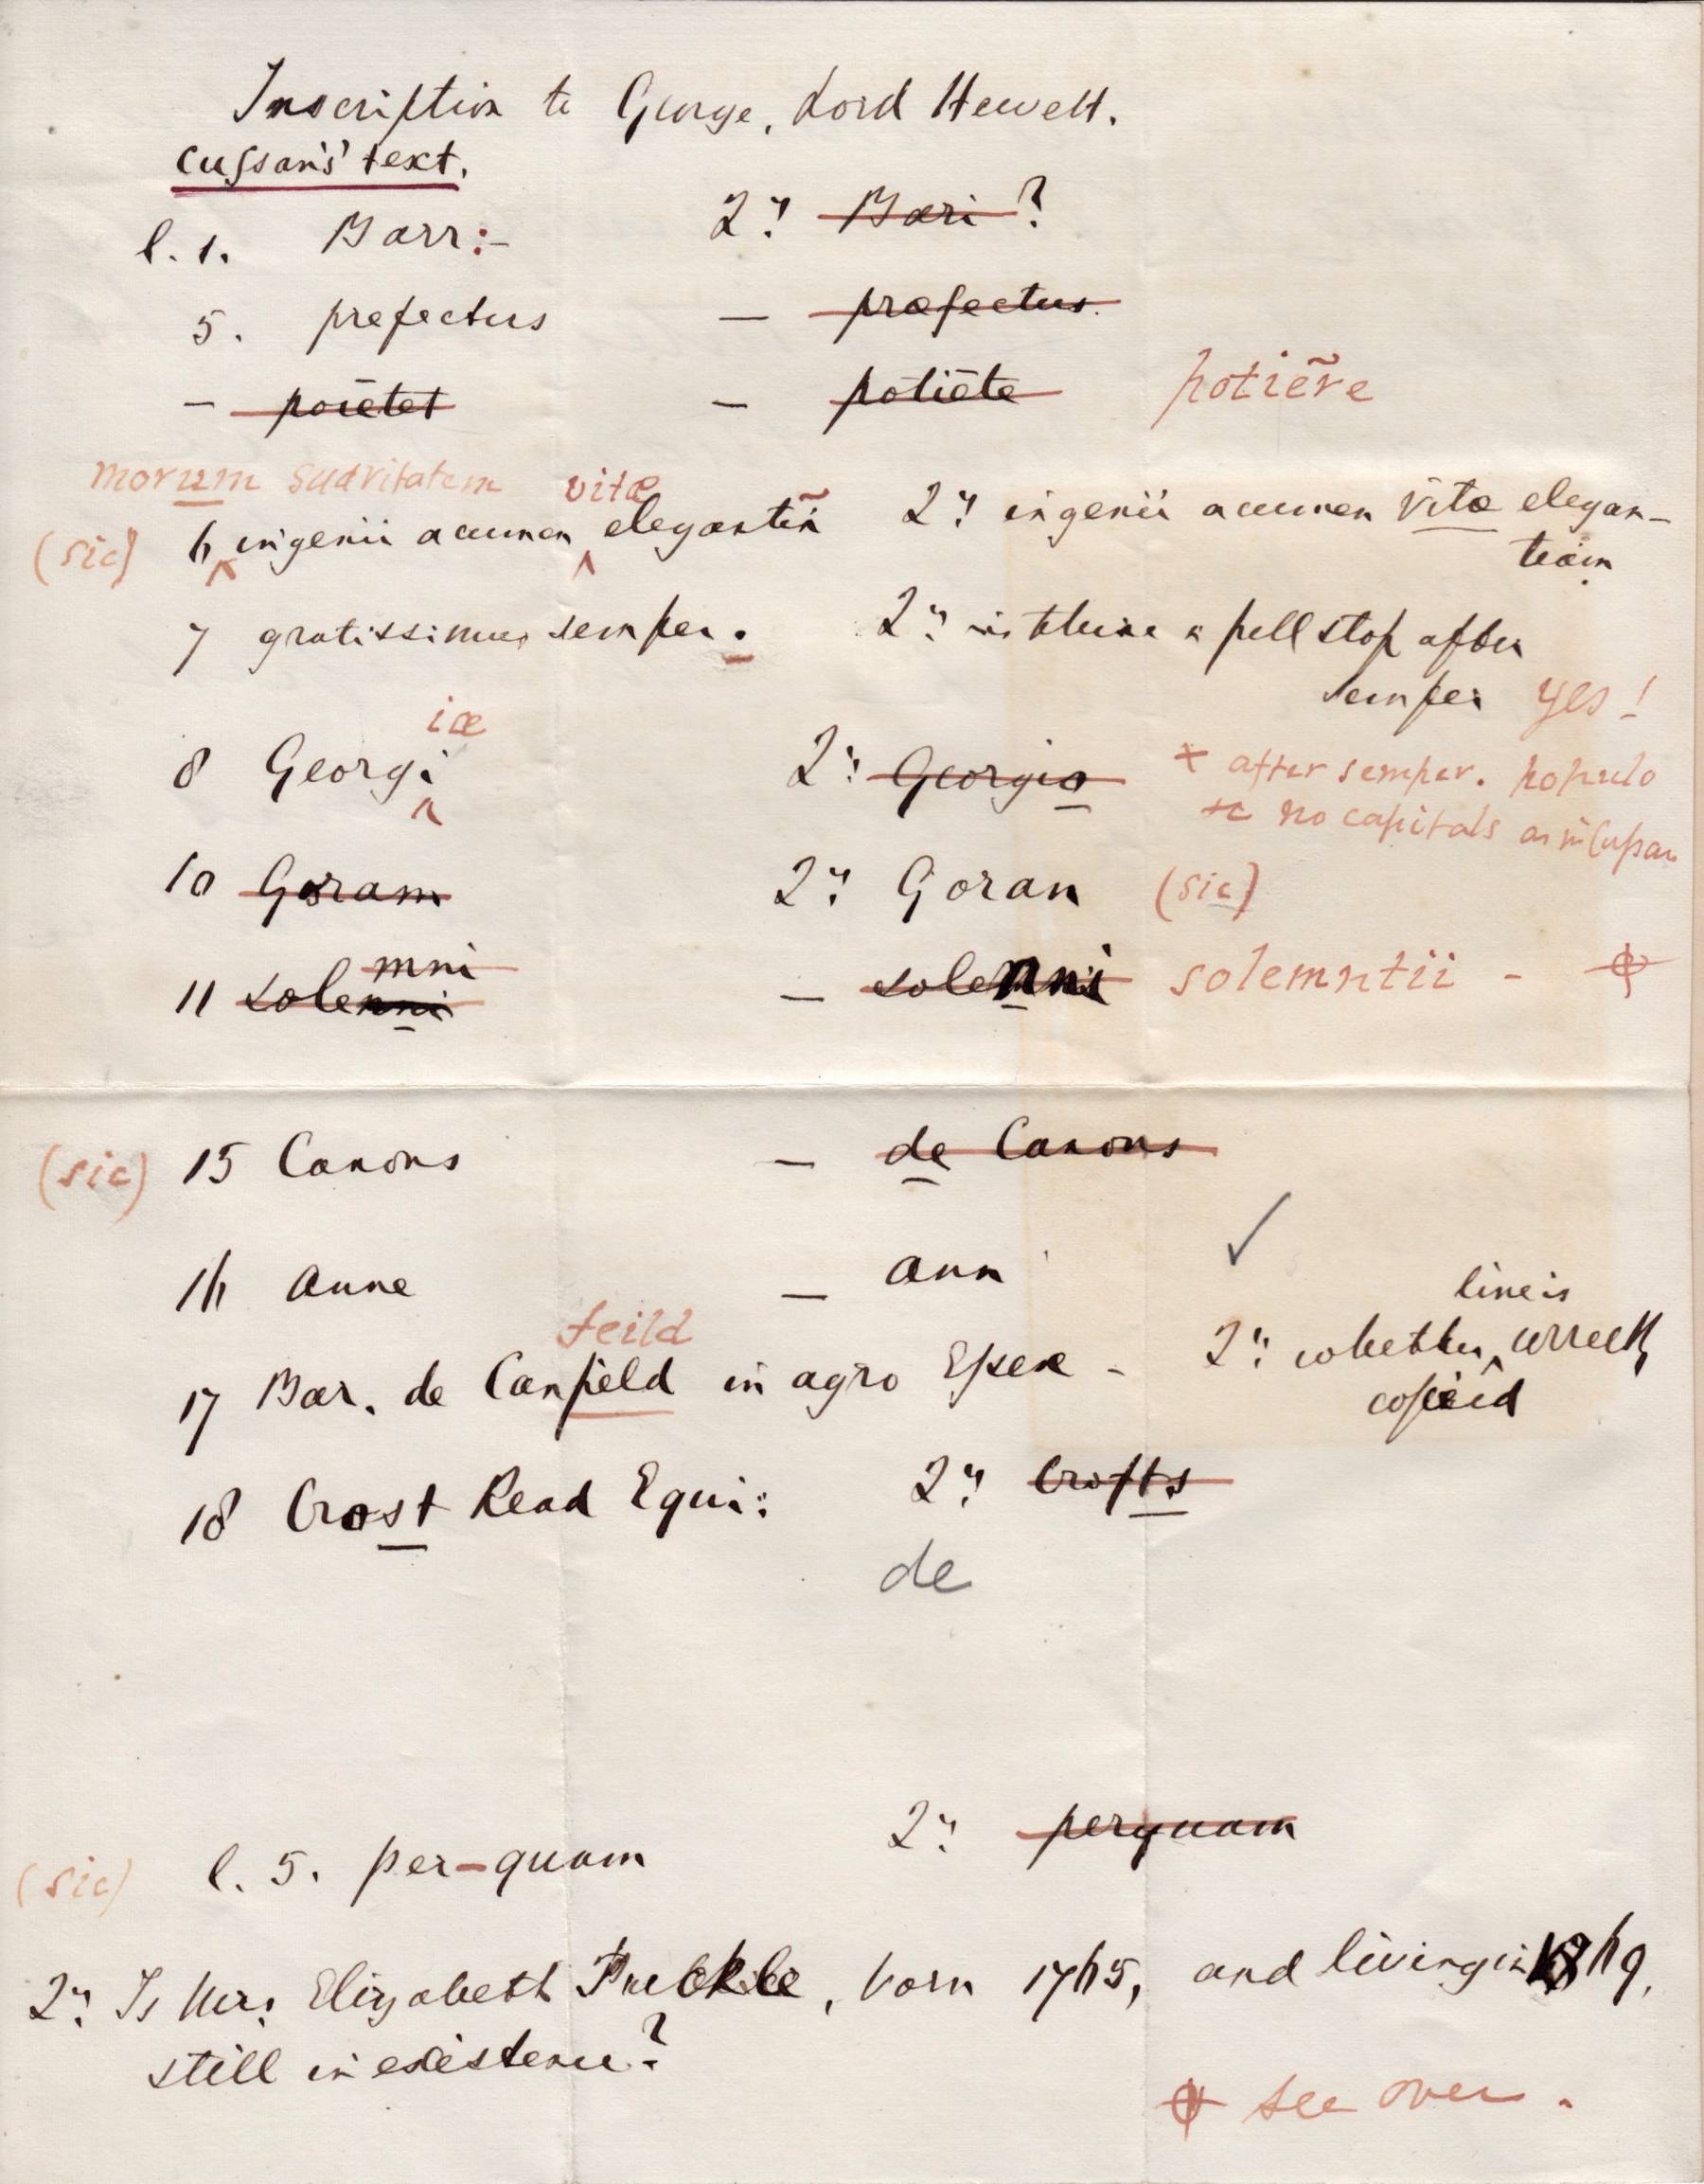 Inscription to George, Lord Hewett.
Cussans' text.
l. 1. Barr:- 2y: Bari ?
5. prefectus — præfectus.
— poietet — potiete potiēre
morum suavitatem vitæ
(sic) 6 ingenii acumen elegantiã 2y: ingenii acumen vitæ elegan-
tiam
7 gratissimus semper. 2y: is there a full stop after
semper yes!
iæ
8 Georgi 2y: Georgia + after semper. populo
no capitals as in Cussan
10 Goram 2y: Goran (sic)
mni
11 solenni — solenni solemntii - ϕ
(sic) 15 Canons — de Canons
16 Anne — Ann ✓
feild line is
17 Bar. de Canfield in agro Essex - 2y: whether correctly
copied
18 Crost Read Equi: 2y: Crofts
de
2y: perquam
(sic) l. 5. per-quam
2y: Is Mrs. Elizabeth Puckle, born 1765, and living in 1869,
still in existence?
ϕ see over.